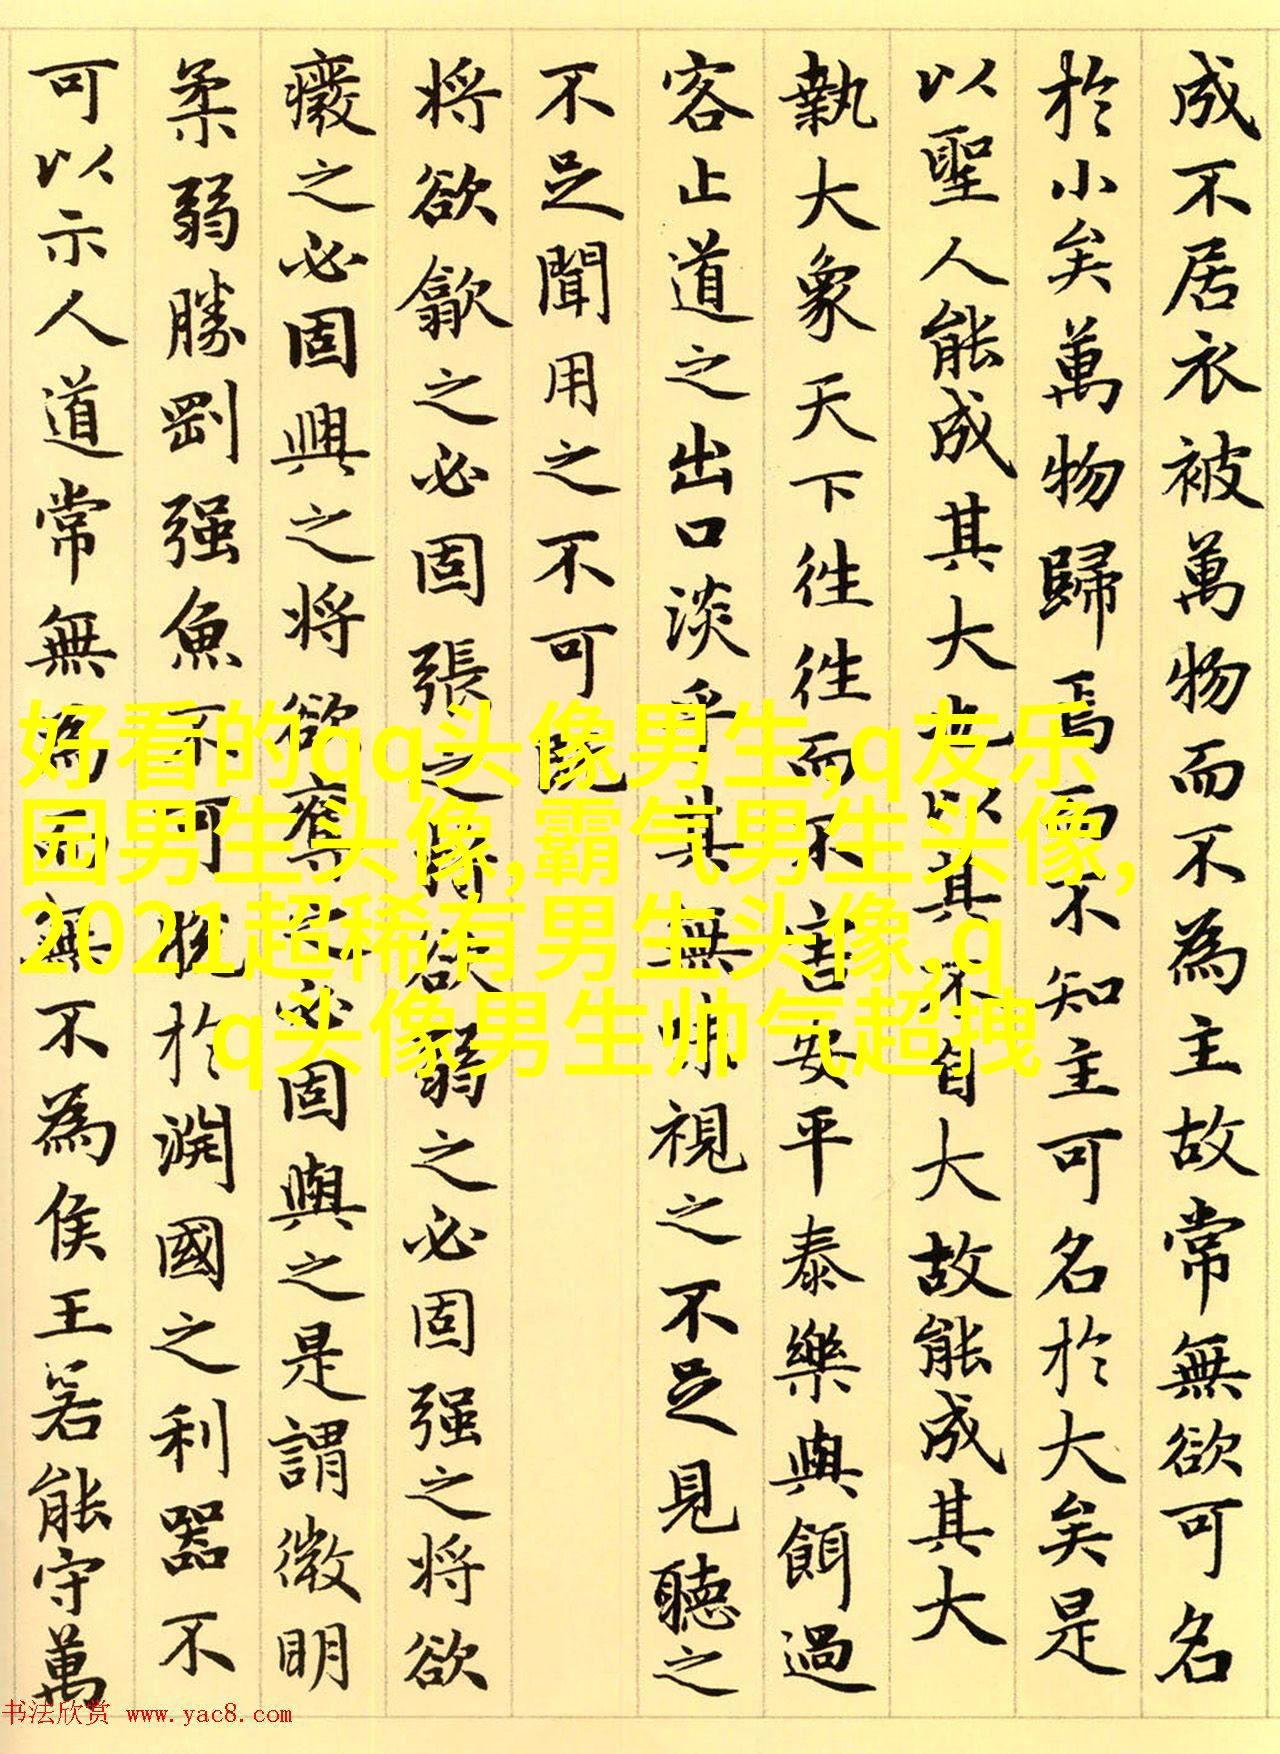 成不居衣被萬物而不為主故常無欲可名
於小矣萬物歸焉而不知主可名於大矣是
以聖人能成其大也以其不自大故能成其大
執大象天下往往而不害安平泰樂與餌過
客止道之出口淡乎其無味視之不足見聽之
不足聞用之不可既
將欲歙之必固張之將欲弱之必固强之將欲
癈之必固興之將欲奪之必固與之是謂微明
柔弱勝剛强魚不可脫於淵國之利器不
可以示人道常無為而無不為侯王若能守萬
好看的qq头像男生,q友乐
园男生头像,霸气男生头像,
2021超稀有男生头像,q
q头像男生帅气超拽
书法欣赏 www.yac8.com